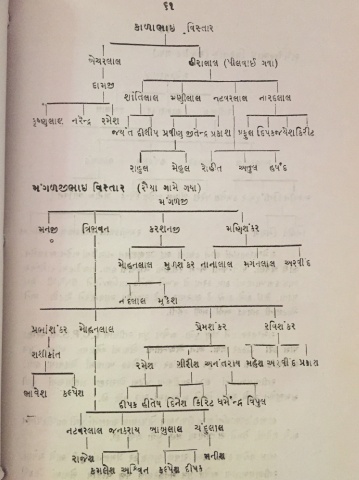 ૬૧
કાળાભાઇ વિસ્તાર
બેચરલાલ હીરાલાલ (પીલવાઈ ગયા)
દામજી
શાંતિલાલ મણુીલાલ નટવરલાલ નારદલાલ
કૃષ્ણલાલ નરેન્દ્ર રમેશ
જયંત દીલીપ પ્રવીણ જીતેન્દ્ર પ્રકાશ પ્રફુલ દિપક જયેશ કિરીટ
રાહુલ મેહુલ રોહીત અતુલ હર્ષદ
મંગળજીભાઇ વિસ્તાર (રૈયા ગામે ગયા)
મંગળજી
મનજી ત્રિભુવન કરશનજી મણિશંકર
મોહનલાલ મુગશંકર નાનાલાલ મગનલાલ અરવીંદ
નંદલાલ મુકેશ
પ્રભાશંકર મોહનલાલ પ્રેમશંકર રવિશંકર
શશીકાંત
રમેશ ગીરીશ અનંતરાય મહેશ અરવીંદ પ્રકાશ
ભાવેશ કલ્પેશ
દીપક હીતેષ દિનેશ કિરિટ ધર્મેન્દ્ર વિપુલ
નટવરલાલ જનકરાય બાબુલાલ ચંદુલાલ
રાજેશ મનીશ
કમલેશ અશ્વિન કલ્પેશ દીપક